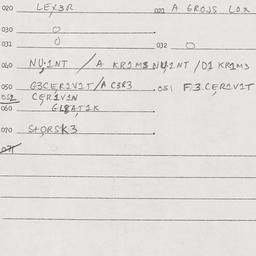 020 LEX3R 021 A GROJS LOX
030 O
031 O 032 O
040 NU1NT / A KR1M3 NU1NT / D1 KR1M3
050 G3CER1V1T / A C3R3 051 F3.CER1V1T
052 CER1V1N
060 GLBAT1K
070 SHORSK3
071